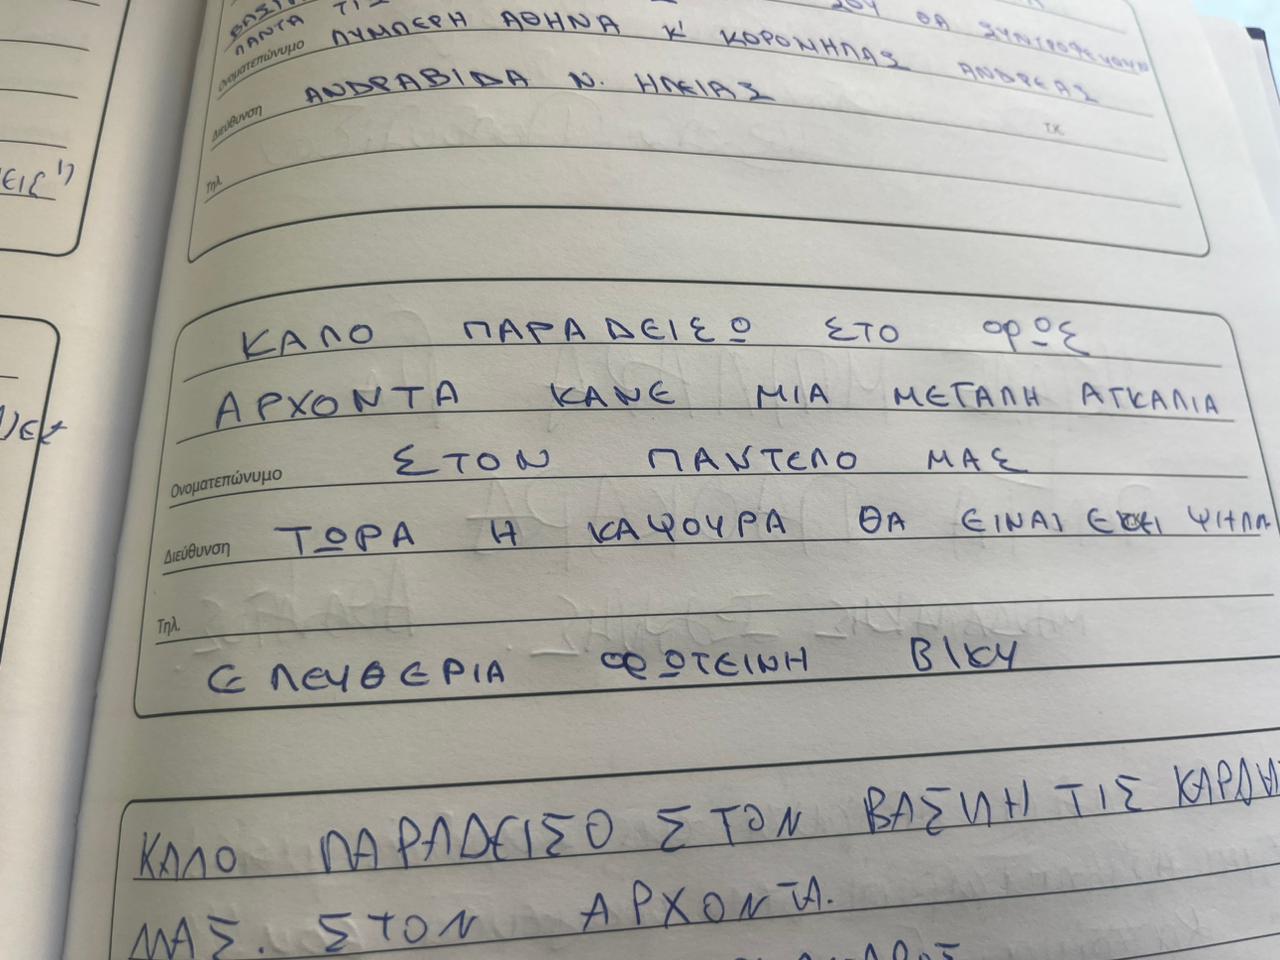 ΠΑΝΤΑ ΤΙΣ
ΣΟΥ ΘΑ ΣΥΝΤΡΟΦΕΥΟΥΝ
Ονοματεπώνυμο ΛΥΜΠΕΡΗ ΑΘΗΝΑ Κ' ΚΟΡΟΜΗΠΑΣ ΑΝΔΡΕΑΣ
Διεύθυνση ΑΝΔΡΑΒΙΔΑ Ν. ΗΛΕΙΑΣ
Τ.Κ.
Τηλ.
ΚΑΛΟ ΠΑΡΑΔΕΙΣΩ ΣΤΟ ΦΩΣ
ΑΡΧΟΝΤΑ ΚΑΝΕ ΜΙΑ ΜΕΓΑΛΗ ΑΓΚΑΛΙΑ
Ονοματεπώνυμο ΣΤΟΝ ΠΑΝΤΕΛΟ ΜΑΣ
Διεύθυνση ΤΩΡΑ Η ΚΑΨΟΥΡΑ ΘΑ ΕΙΝΑΙ ΕΚΕΙ ΨΗΛΑ
Τηλ.
ΕΛΕΥΘΕΡΙΑ ΦΩΤΕΙΝΗ ΒΙΚΥ
ΚΑΛΟ ΠΑΡΑΔΕΙΣΟ ΣΤΟΝ ΒΑΣΙΛΗ ΤΙΣ ΚΑΡΔΙΑ
ΜΑΣ. ΣΤΟΝ ΑΡΧΟΝΤΑ.